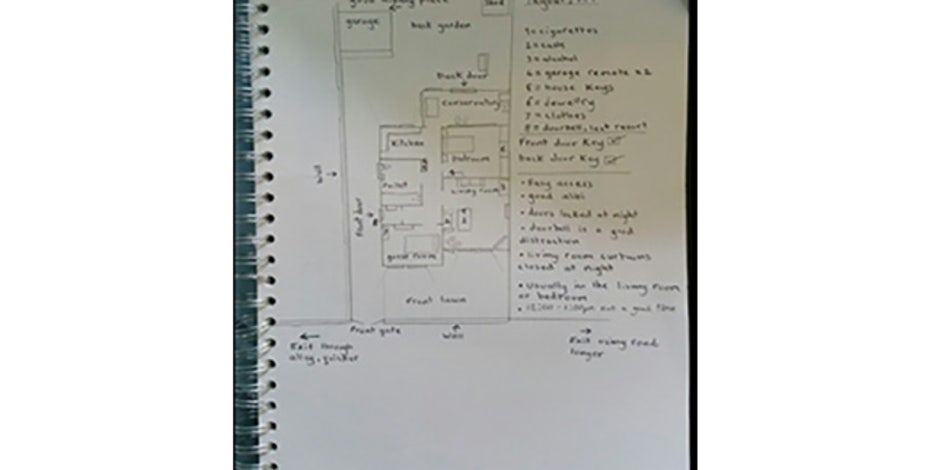 good hiding place
garage
back garden
Shed
1 = cigarettes
2 = cash
3 = alcohol
4 = garage remote x2
5 = house keys
6 = jewelry
7 = clothes
8 = doorbell, last resort
Front door key
back door key
• Easy access
• good alibi
• doors locked at night
• doorbell is a good
distraction
• living room curtains
closed at night
• Usually in the living room
or bedroom
back door
conservatory
kitchen
bedroom
toilet
living room
Wall
Front door
guest room
Front lawn
Front gate
Wall
Exit through
alley, quicker
Exit using road
longer